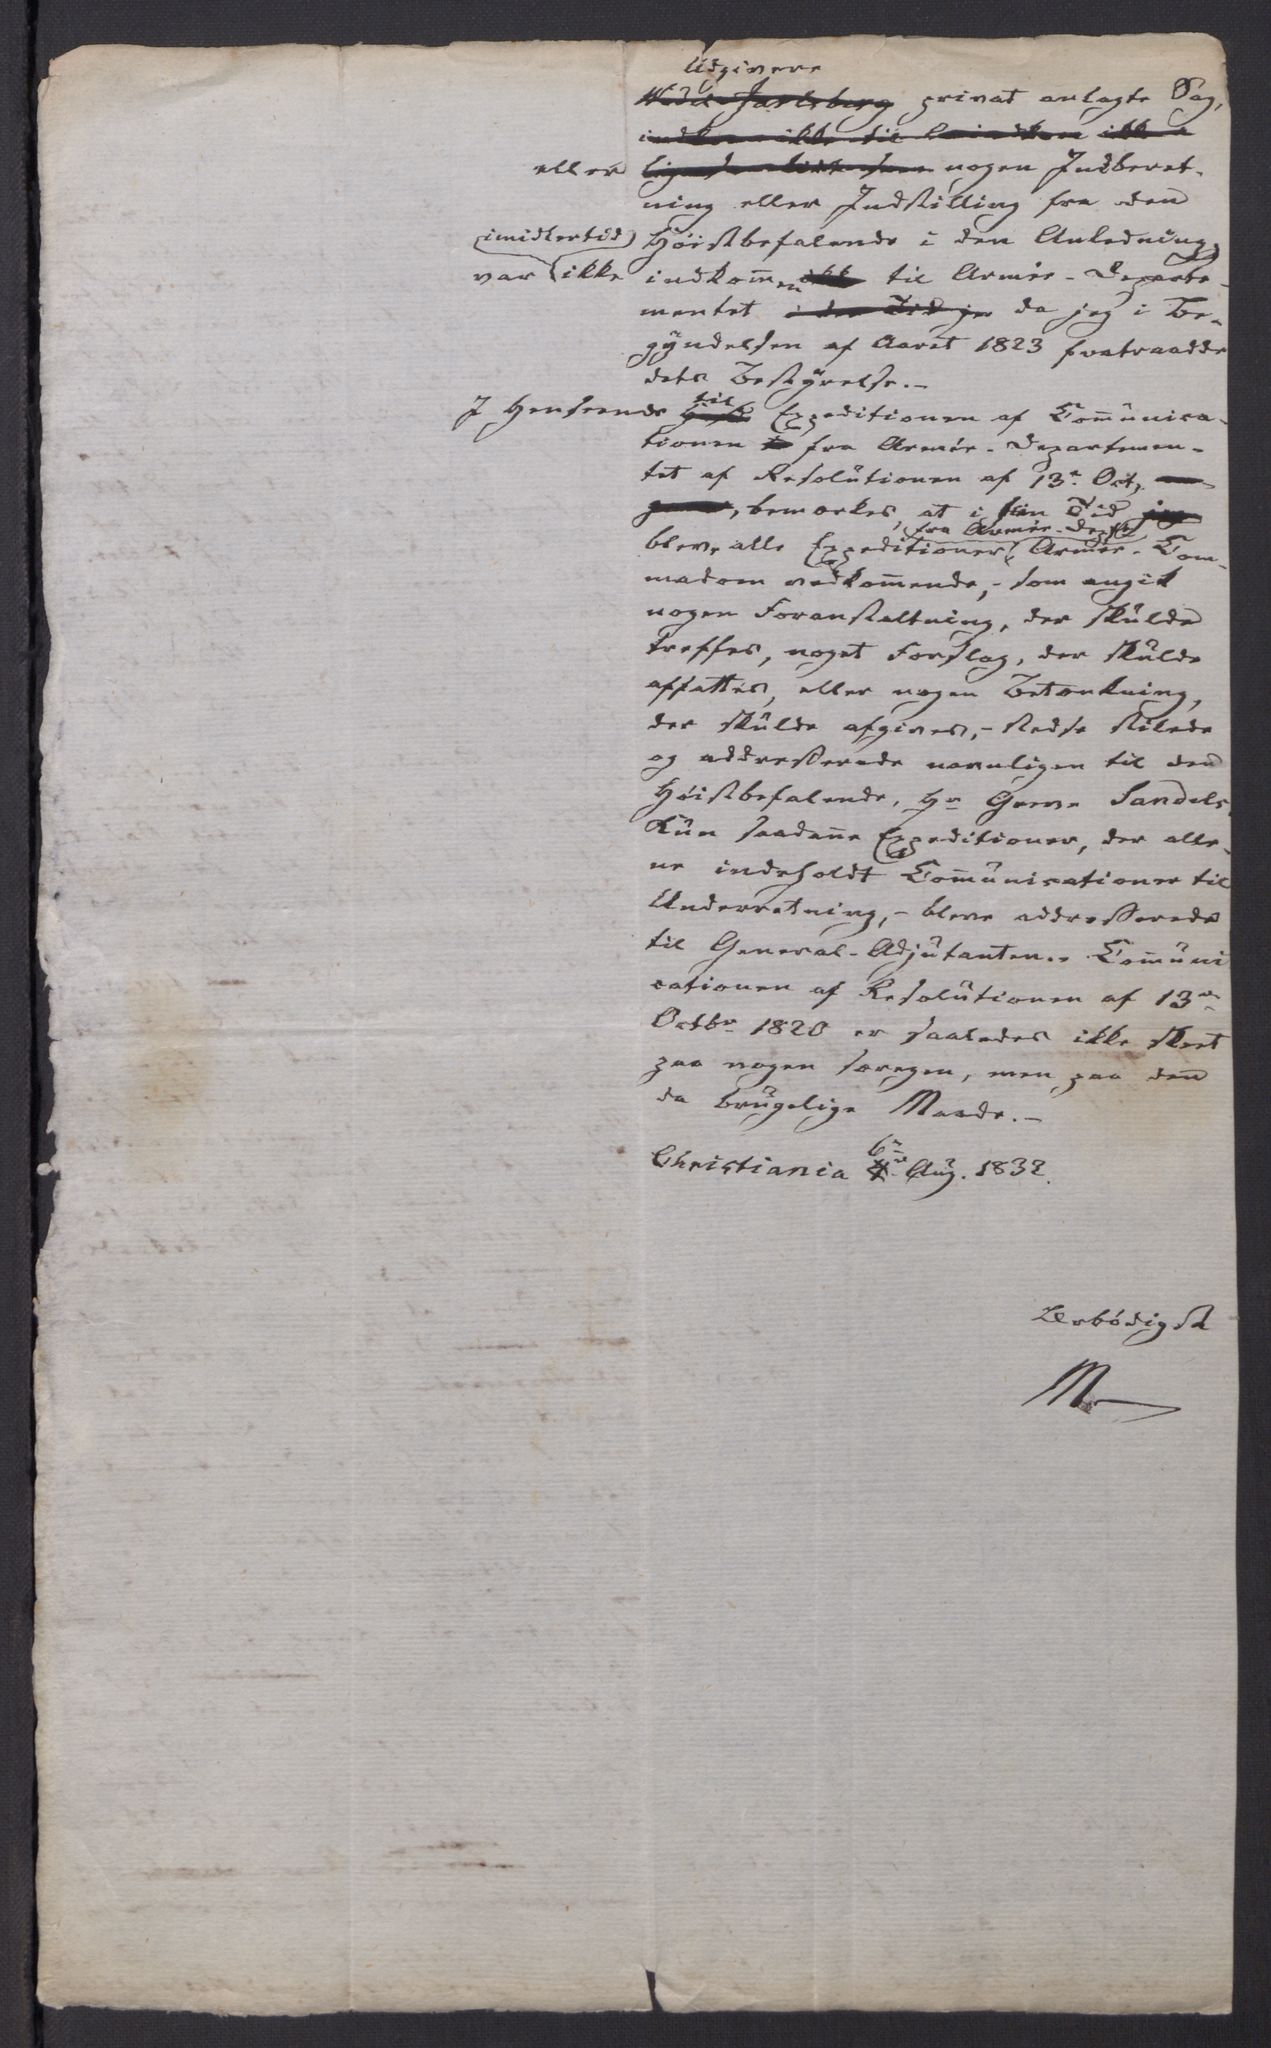 Udgivere
Wedel-Jarlsberg privat anlagte Sag,
eller nogen Indberet-
ning eller Indstilling fra den
imidlertid Höistbefalende i den Anledning
var ikke indkommen ikke til Armée-Departe-
mentet i den Tid jeg da jeg i Be-
gyndelsen af Aaret 1823 fratraadde
dets Bestyrelse.-
til
I Henseende Expeditionen af Communica-
tionen fra Armée-Departemen-
tet af Resolutionen af 13de Oct,
, bemærkes, at i sin Tid jeg
fra Armée-Dept
bleve alle Expeditioner, Armée-Com-
madoen vedkommende,- som angik
nogen Foranstaltning, der skulde
træffes, noget Forslag, der skulde
affattes, eller nogen Betænkning,
der skulde afgives,- stedse stilede
og addresserede navnligen til den
Höistbefalende, Hr Greve Sandels,
Kun saadanne Expeditioner, der alle-
ne indeholdt Communicationer til
Underretning,- bleve addresserede
til General-Adjutanten.- Communi
cationen af Resolutionen af 13de
Octbr 1820 er saaledes ikke skeet
paa nogen særegen, men paa den
da brugelige Maade.-
6te
Christiania Aug. 1832.
Ærbödigst
M